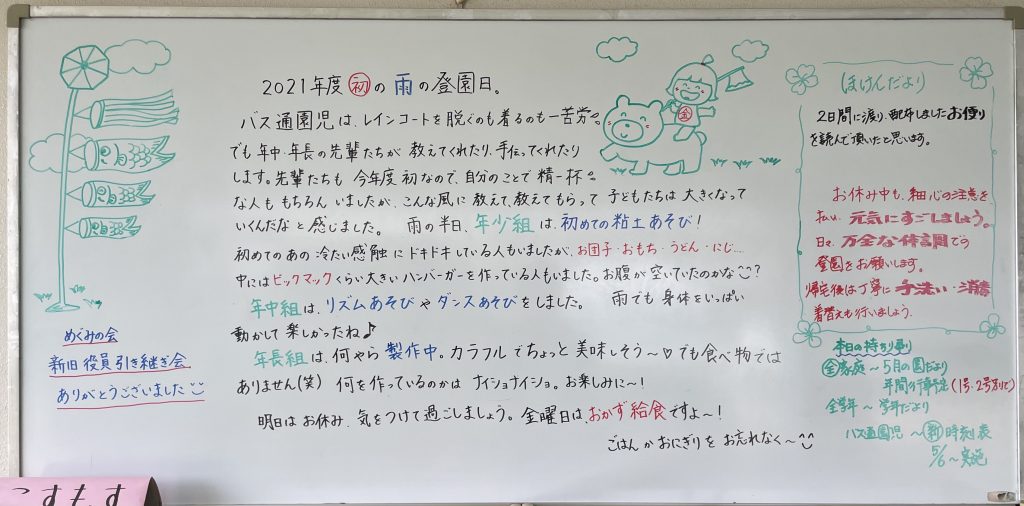 2021年度㊗初の雨の登園日。
バス通園児は、レインコートを脱ぐのも着るのも一苦労
でも年中・年長の先輩たちが教えてくれたり、手伝ってくれたり
します。先輩たちも今年度初なので、自分のことで精一杯
な人ももちろんいましたが、こんな風に教えて、教えてもらって子どもたちは大きくなって
いくんだなと感じました。 雨の半日、年少組は初めての粘土あそび!
初めてのあの冷たい感触にドキドキしている人もいましたが、お団子・おもち・うどん・にじ…
中にはビックマックくらい大きいハンバーガーを作っている人もいました。お腹が空いていたのかな?
年中組は、リズムあそびやダンスあそびをしました。 雨でも身体をいっぱい
動かして楽しかったね♪
年長組は、何やら製作中。カラフルでちょっと美味しそう〜♡でも食べ物では
ありません(笑) 何を作っているのかはナイショナイショ。お楽しみに〜!
明日はお休み、気をつけて過ごしましょう。金曜日は、おかず給食ですよ〜!
ごはんかおにぎりをお忘れなく〜
めぐみの会
新旧役員引き継ぎ会
ありがとうございました
金
ほけんだより
2日間に渡り、配布しましたお便り
を読んで頂いたと思います。
お休み中も、細心の注意を
払い、元気にすごしましょう。
日々、万全な体調での
登園をお願いします。
帰宅後は丁寧に手洗い・消毒
着替えも行いましょう。
本日の持ち帰り
全家庭〜5月の園だより
年間行事予定(1号・2号別で)
全学年〜学年だより
バス通園児〜新時刻表
5/6〜実施
こすもす